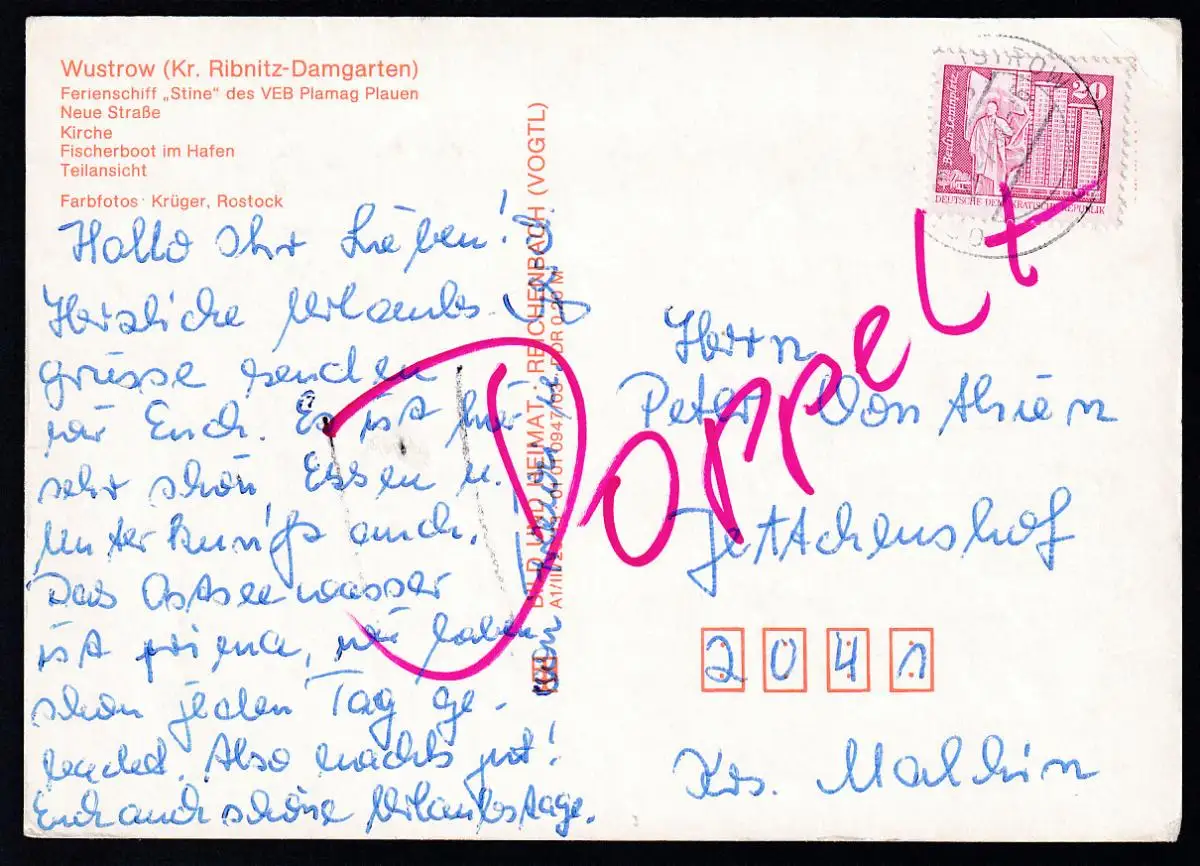 Wustrow (Kr. Ribnitz-Damgarten)
Ferienschiff „Stine“ des VEB Plamag Plauen
Neue Straße
Kirche
Fischerboot im Hafen
Teilansicht
Farbfotos Krüger, Rostock
Hallo Ihr Lieben!
Herzliche Urlaubs-
grüsse senden
wir Euch. Es ist hier
sehr schön, Essen u.
Unterkunft auch.
Das Ostseewasser
ist prima, wir haben
schon jeden Tag ge-
badet. Also machts gut!
Euch auch schöne Urlaubstage.
BILD UND HEIMAT REICHENBACH (VOGTL)
A1/III/2 01 01 0947/03 DDR 0,20 M
Doppelt
20
DEUTSCHE DEMOKRATISCHE REPUBLIK
Herrn
Peter
Jettchenshof
2041
Krs. Malchin